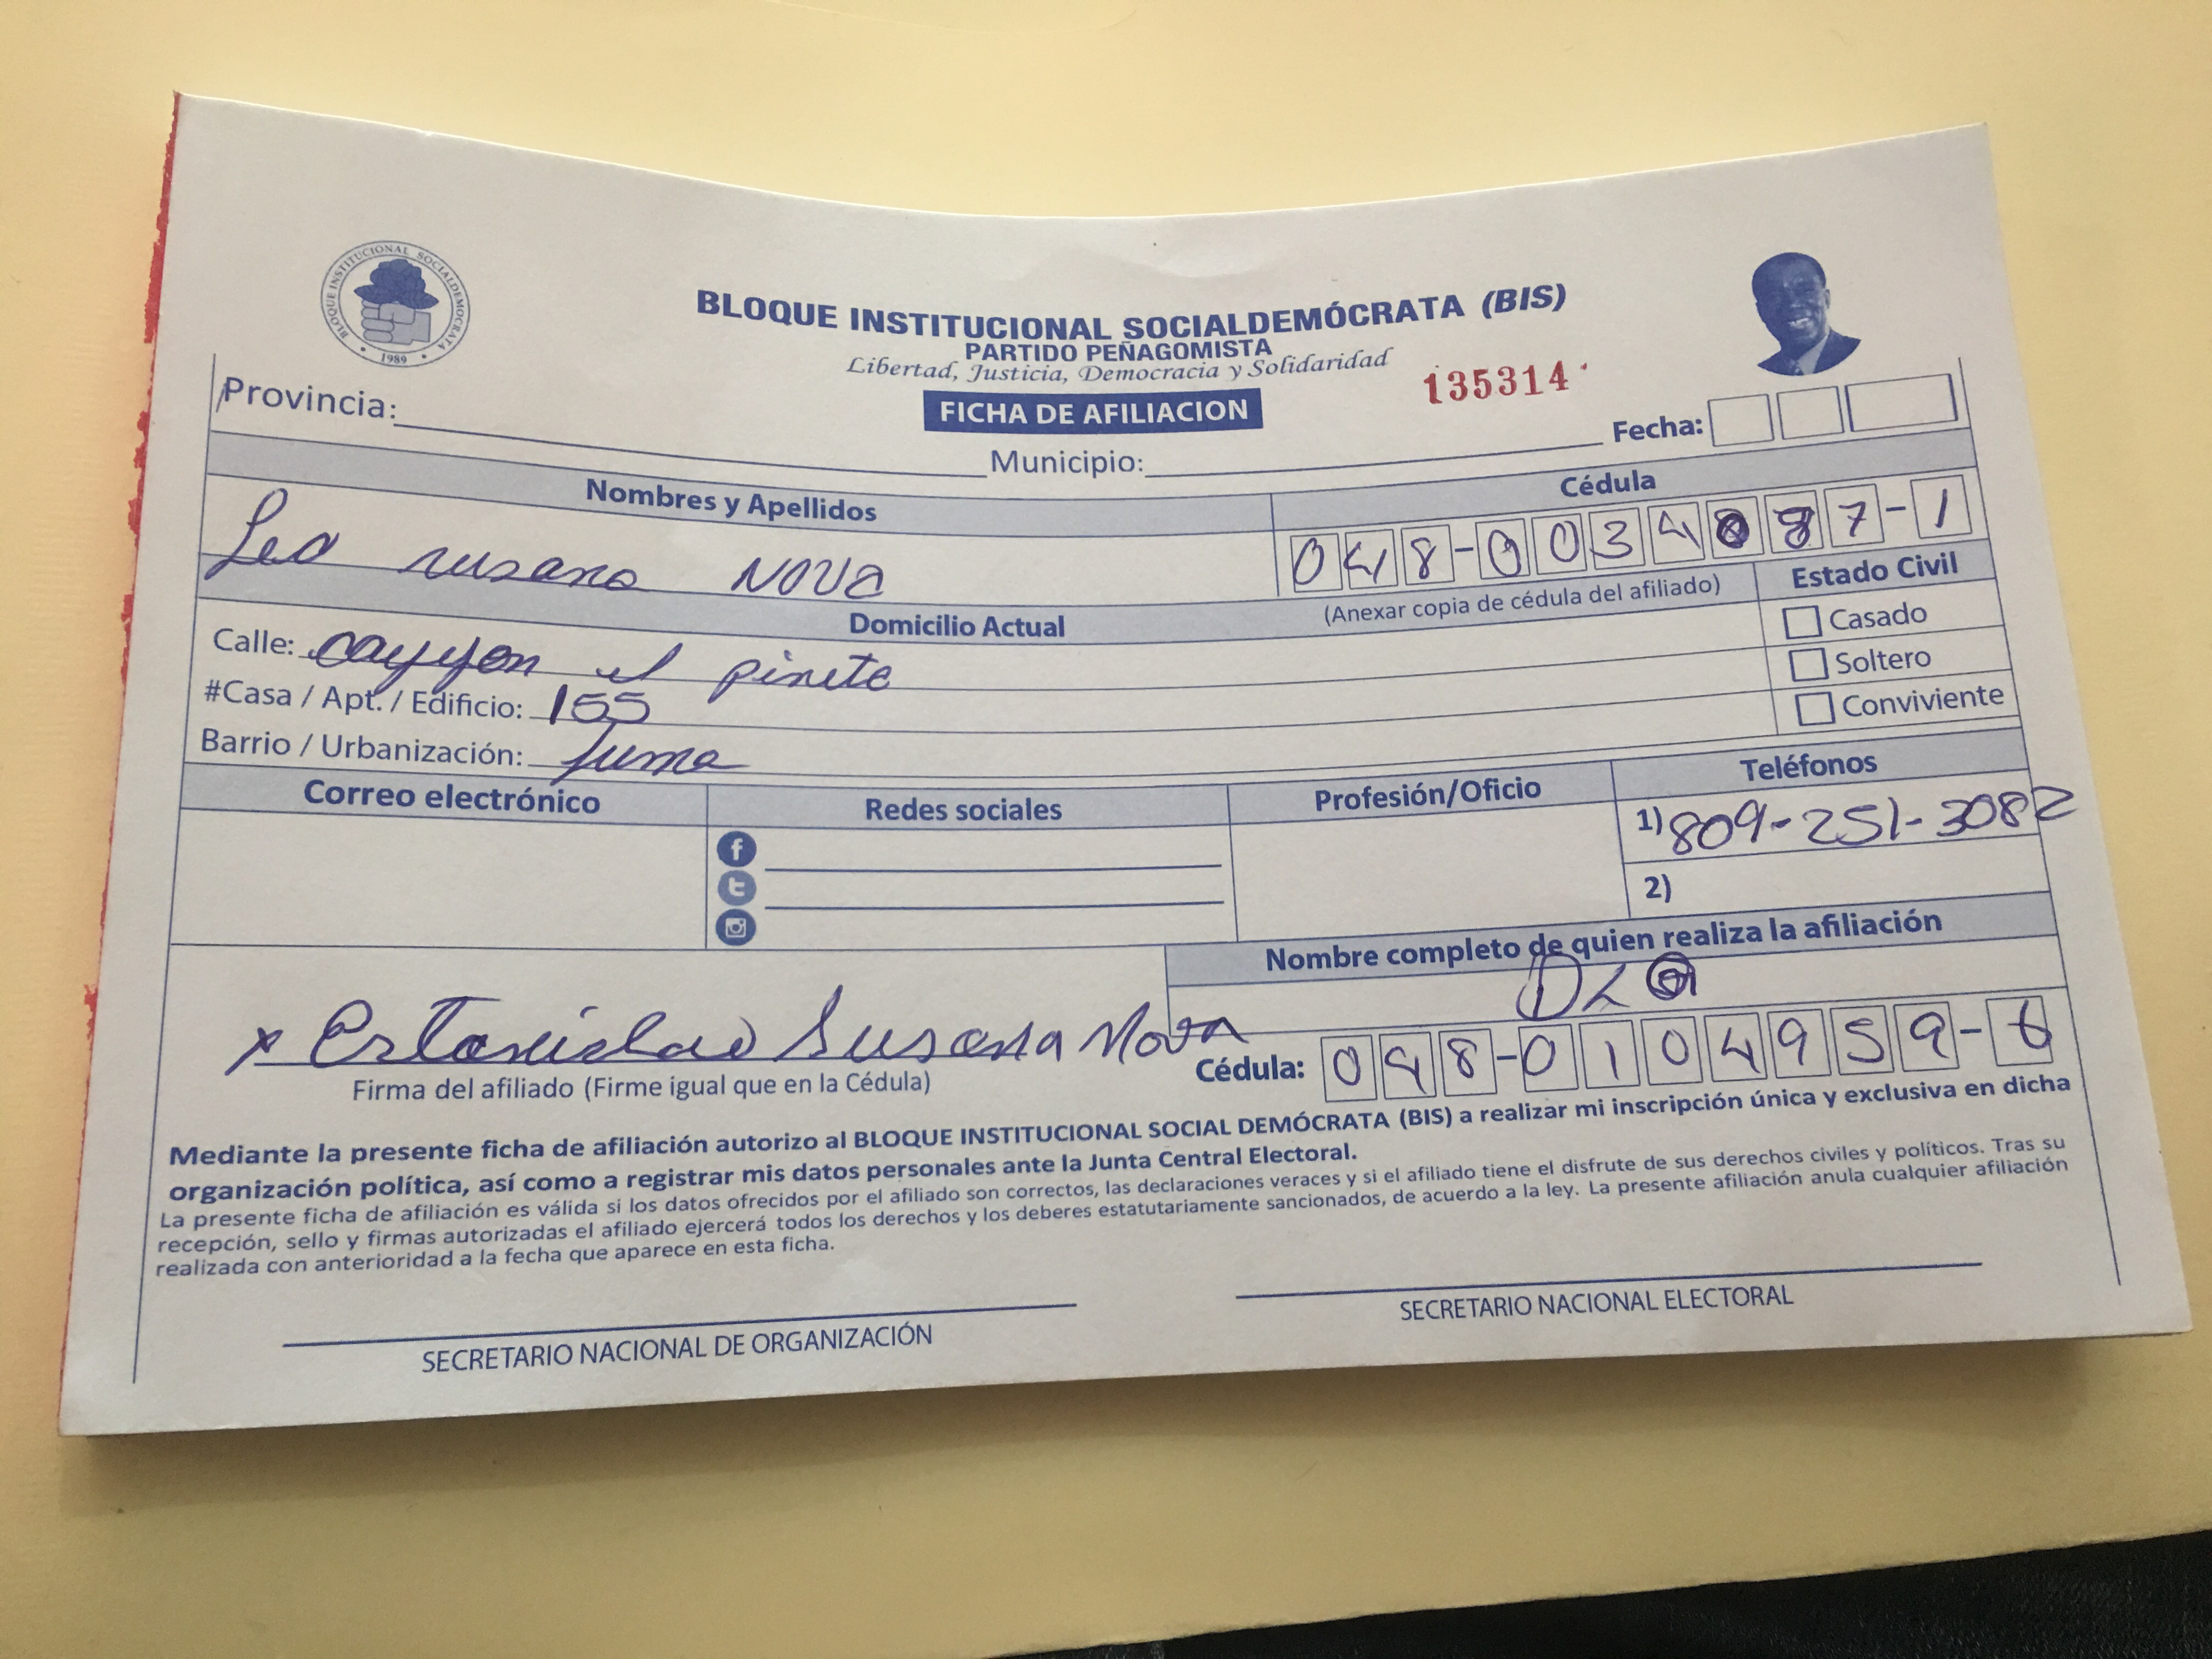 BLOQUE INSTITUCIONAL SOCIALDEMOCRATA
1989
BLOQUE INSTITUCIONAL SOCIALDEMÓCRATA (BIS)
PARTIDO PEÑAGOMISTA
Libertad, Justicia, Democracia y Solidaridad
135314
FICHA DE AFILIACION
Provincia:
Municipio:
Fecha:
Nombres y Apellidos
Cédula
Leo susana NOVa
048-0034087-1
(Anexar copia de cédula del afiliado)
Estado Civil
Domicilio Actual
Casado
Calle: el pinete
Soltero
#Casa / Apt. / Edificio: 155
Conviviente
Barrio / Urbanización: Juma
Correo electrónico
Redes sociales
Profesión/Oficio
Teléfonos
1) 809-251-3082
2)
Nombre completo de quien realiza la afiliación
x Estanislao Susana Nova
Firma del afiliado (Firme igual que en la Cédula)
Cédula: 048-0104959-6
Mediante la presente ficha de afiliación autorizo al BLOQUE INSTITUCIONAL SOCIAL DEMÓCRATA (BIS) a realizar mi inscripción única y exclusiva en dicha
organización política, así como a registrar mis datos personales ante la Junta Central Electoral.
La presente ficha de afiliación es válida si los datos ofrecidos por el afiliado son correctos, las declaraciones veraces y si el afiliado tiene el disfrute de sus derechos civiles y políticos. Tras su
recepción, sello y firmas autorizadas el afiliado ejercerá todos los derechos y los deberes estatutariamente sancionados, de acuerdo a la ley. La presente afiliación anula cualquier afiliación
realizada con anterioridad a la fecha que aparece en esta ficha.
SECRETARIO NACIONAL DE ORGANIZACIÓN
SECRETARIO NACIONAL ELECTORAL